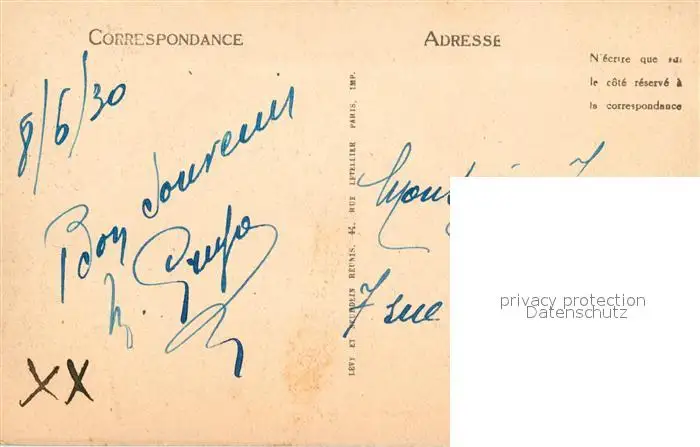 CORRESPONDANCE
ADRESSE
N'écrire que sur
le côté réservé à
la correspondance
8/6/30
Bon Souvenir
LÉVY ET NEURDEIN RÉUNIS, 44, RUE LETELLIER PARIS, IMP.
7 rue
XX
privacy protection
Datenschutz